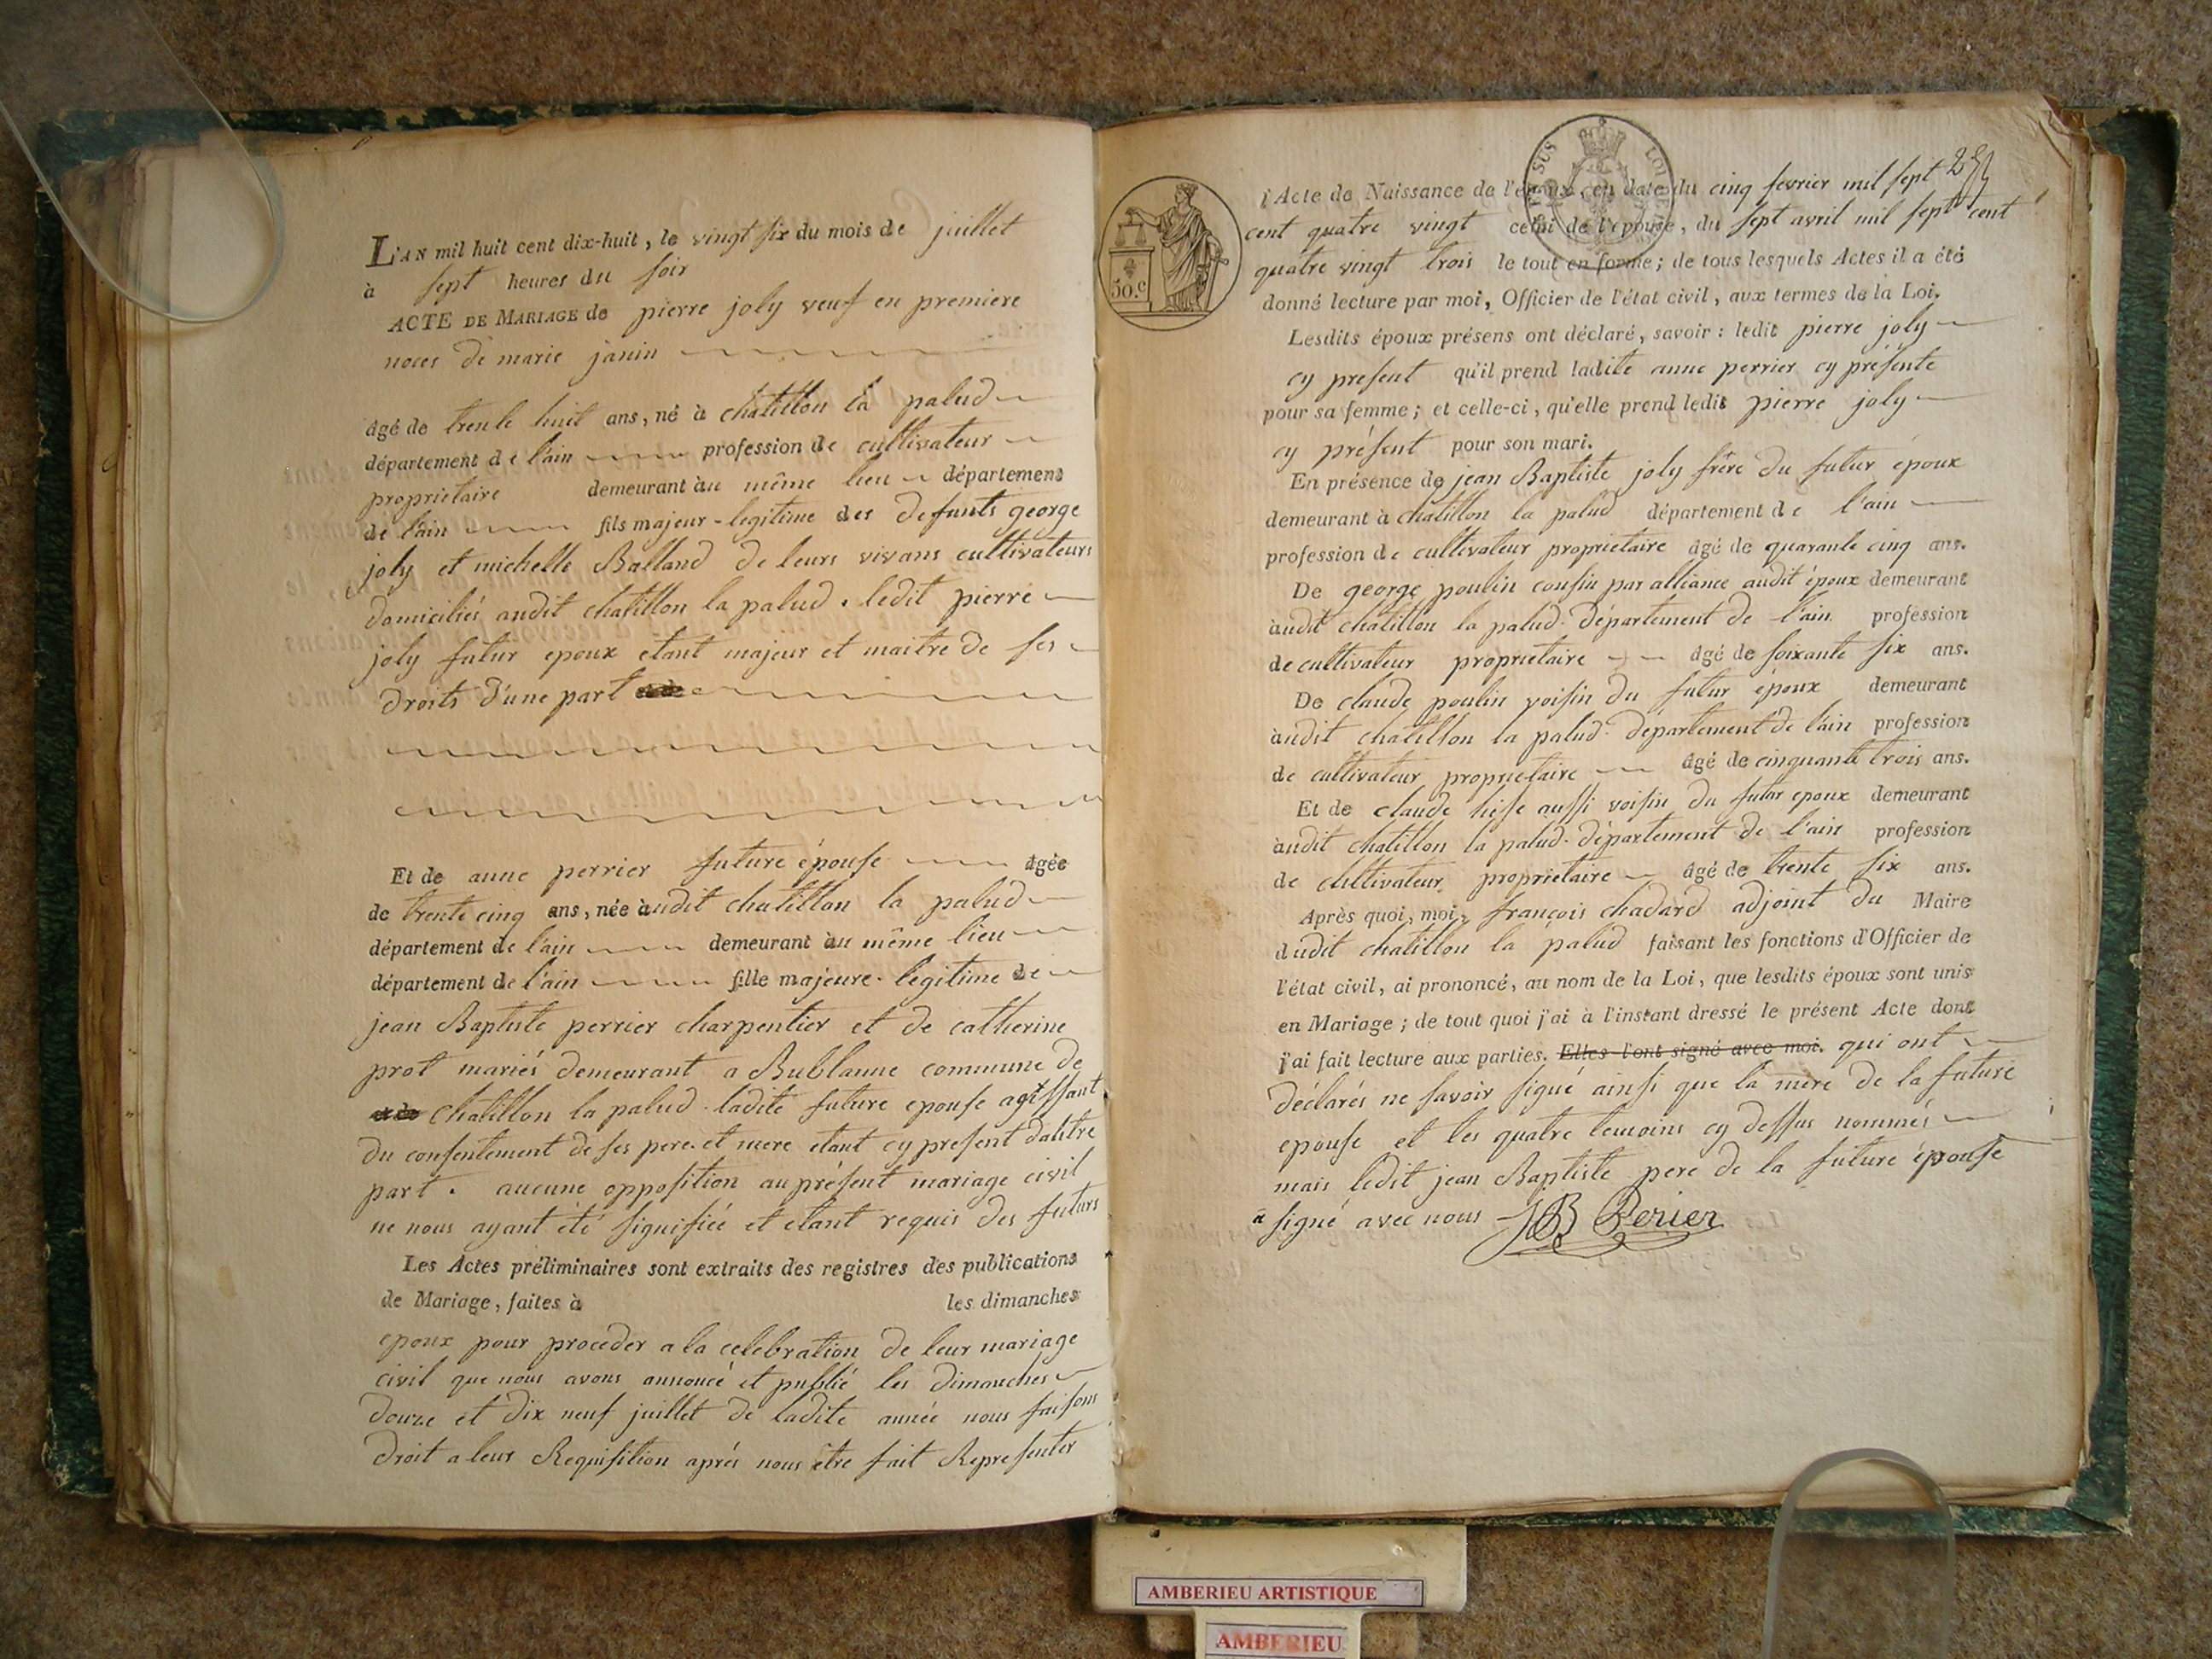 L'AN mil huit cent dix-huit, le vingt six du mois de juillet
à sept heures du soir
ACTE DE MARIAGE de pierre joly veuf en premiere
noces de marie janin
âgé de trente huit ans, né à chatillon la palud
département de l'ain profession de cultivateur
proprietaire demeurant au même lieu département
de l'ain fils majeur - legitime des defunts george
joly et michelle Balland de leurs vivans cultivateurs
domiciliés audit chatillon la palud. ledit pierre
joly futur epoux etant majeur et maitre de ses
droits d'une part
Et de anne perrier future épouse âgée
de trente cinq ans, née audit chatillon la palud
département de l'ain demeurant au même lieu
département de l'ain fille majeure - legitime de
jean Baptiste perrier charpentier et de catherine
prot mariés demeurant a Bublanne commune de
chatillon la palud. ladite future epouse agissant
du consentement de ses pere et mere etant cy present dautre
part. aucune opposition au présent mariage civil
ne nous ayant été signifiée et etant requis des futurs
Les Actes préliminaires sont extraits des registres des publications
de Mariage, faites à les dimanches
epoux pour proceder a la celebration de leur mariage
civil que nous avons annoncé et publié les dimanches
douze et dix neuf juillet de ladite année nous faisons
droit a leur Requisition aprés nous être fait Representer
50.c
l'Acte de Naissance de l'époux, en date du cinq fevrier mil sept
cent quatre vingt celui de l'épouse, du sept avril mil sept cent
quatre vingt trois le tout en forme; de tous lesquels Actes il a été
donné lecture par moi, Officier de l'état civil, aux termes de la Loi.
Lesdits époux présens ont déclaré, savoir : ledit pierre joly
cy present qu'il prend ladite anne perrier cy présente
pour sa femme; et celle-ci, qu'elle prend ledit pierre joly
cy présent pour son mari.
En présence de jean Baptiste joly frère du futur époux
demeurant à chatillon la palud département de l'ain
profession de cultivateur proprietaire âgé de quarante cinq ans.
De george poulin cousin par alliance audit époux demeurant
audit chatillon la palud. Département de l'ain profession
de cultivateur proprietaire âgé de soixante six ans.
De claude poulin voisin du futur époux demeurant
audit chatillon la palud. département de l'ain profession
de cultivateur proprietaire âgé de cinquante trois ans.
Et de claude aussi voisin du futur epoux demeurant
audit chatillon la palud. département de l'ain profession
de cultivateur proprietaire âgé de trente six ans.
Après quoi, moi, françois chadard adjoint du Maire
dudit chatillon la palud faisant les fonctions d'Officier de
l'état civil, ai prononcé, au nom de la Loi, que lesdits époux sont unis
en Mariage; de tout quoi j'ai à l'instant dressé le présent Acte dont
j'ai fait lecture aux parties. Elles l'ont signé avec moi. qui ont
déclarés ne savoir signé ainsi que la mere de la future
epouse et les quatre temoins cy dessus nommés
mais ledit jean Baptiste pere de la future épouse
a signé avec nous JB Perier
AMBERIEU ARTISTIQUE
AMBERIEU